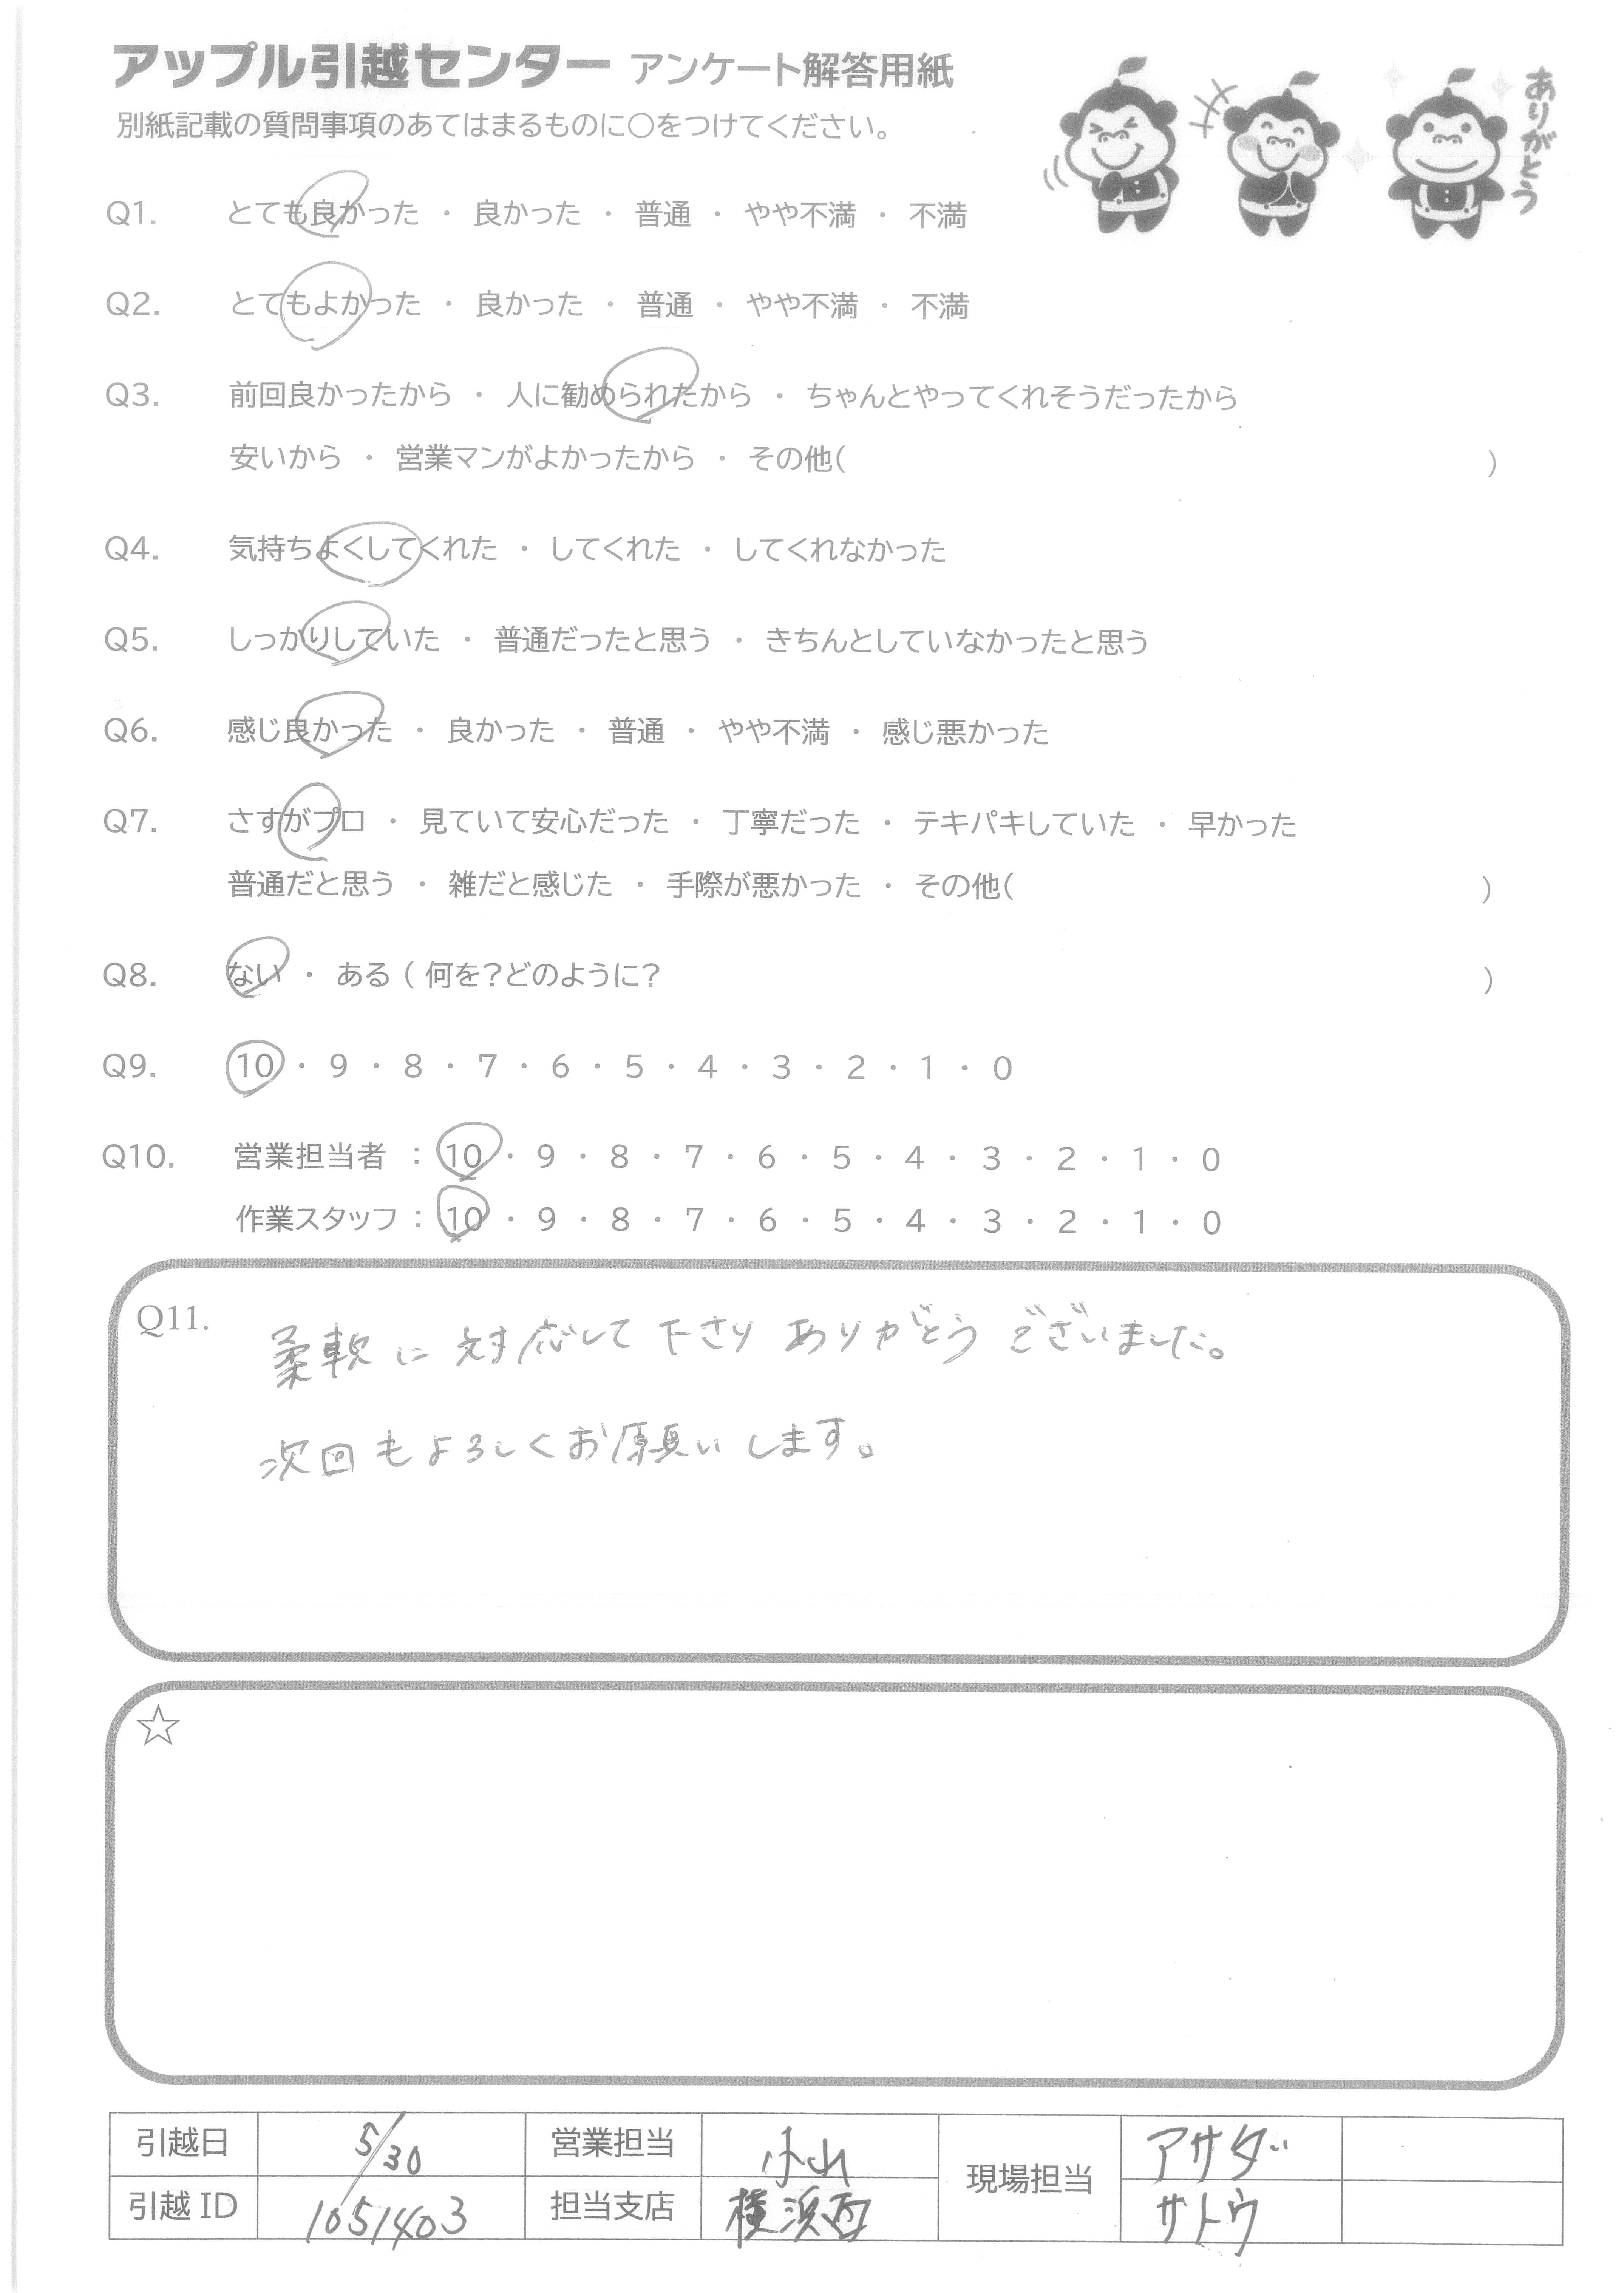 アップル引越センター アンケート解答用紙
ありがとう
別紙記載の質問事項のあてはまるものに○をつけてください。
Q1. とても良かった ・ 良かった ・ 普通 ・ やや不満 ・ 不満
Q2. とてもよかった ・ 良かった ・ 普通 ・ やや不満 ・ 不満
Q3. 前回良かったから ・ 人に勧められたから ・ ちゃんとやってくれそうだったから
安いから ・ 営業マンがよかったから ・ その他( )
Q4. 気持ちよくしてくれた ・ してくれた ・ してくれなかった
Q5. しっかりしていた ・ 普通だったと思う ・ きちんとしていなかったと思う
Q6. 感じ良かった ・ 良かった ・ 普通 ・ やや不満 ・ 感じ悪かった
Q7. さすがプロ ・ 見ていて安心だった ・ 丁寧だった ・ テキパキしていた ・ 早かった
普通だと思う ・ 雑だと感じた ・ 手際が悪かった ・ その他( )
Q8. ない ・ ある ( 何を?どのように? )
Q9. 10 ・ 9 ・ 8 ・ 7 ・ 6 ・ 5 ・ 4 ・ 3 ・ 2 ・ 1 ・ 0
Q10. 営業担当者 : 10 ・ 9 ・ 8 ・ 7 ・ 6 ・ 5 ・ 4 ・ 3 ・ 2 ・ 1 ・ 0
作業スタッフ : 10 ・ 9 ・ 8 ・ 7 ・ 6 ・ 5 ・ 4 ・ 3 ・ 2 ・ 1 ・ 0
Q11. 柔軟に対応して下さりありがとうございました。
次回もよろしくお願いします。
☆
引越日 5/30 営業担当 小山 現場担当 アサダ
引越ID 1051403 担当支店 横浜西 サトウ